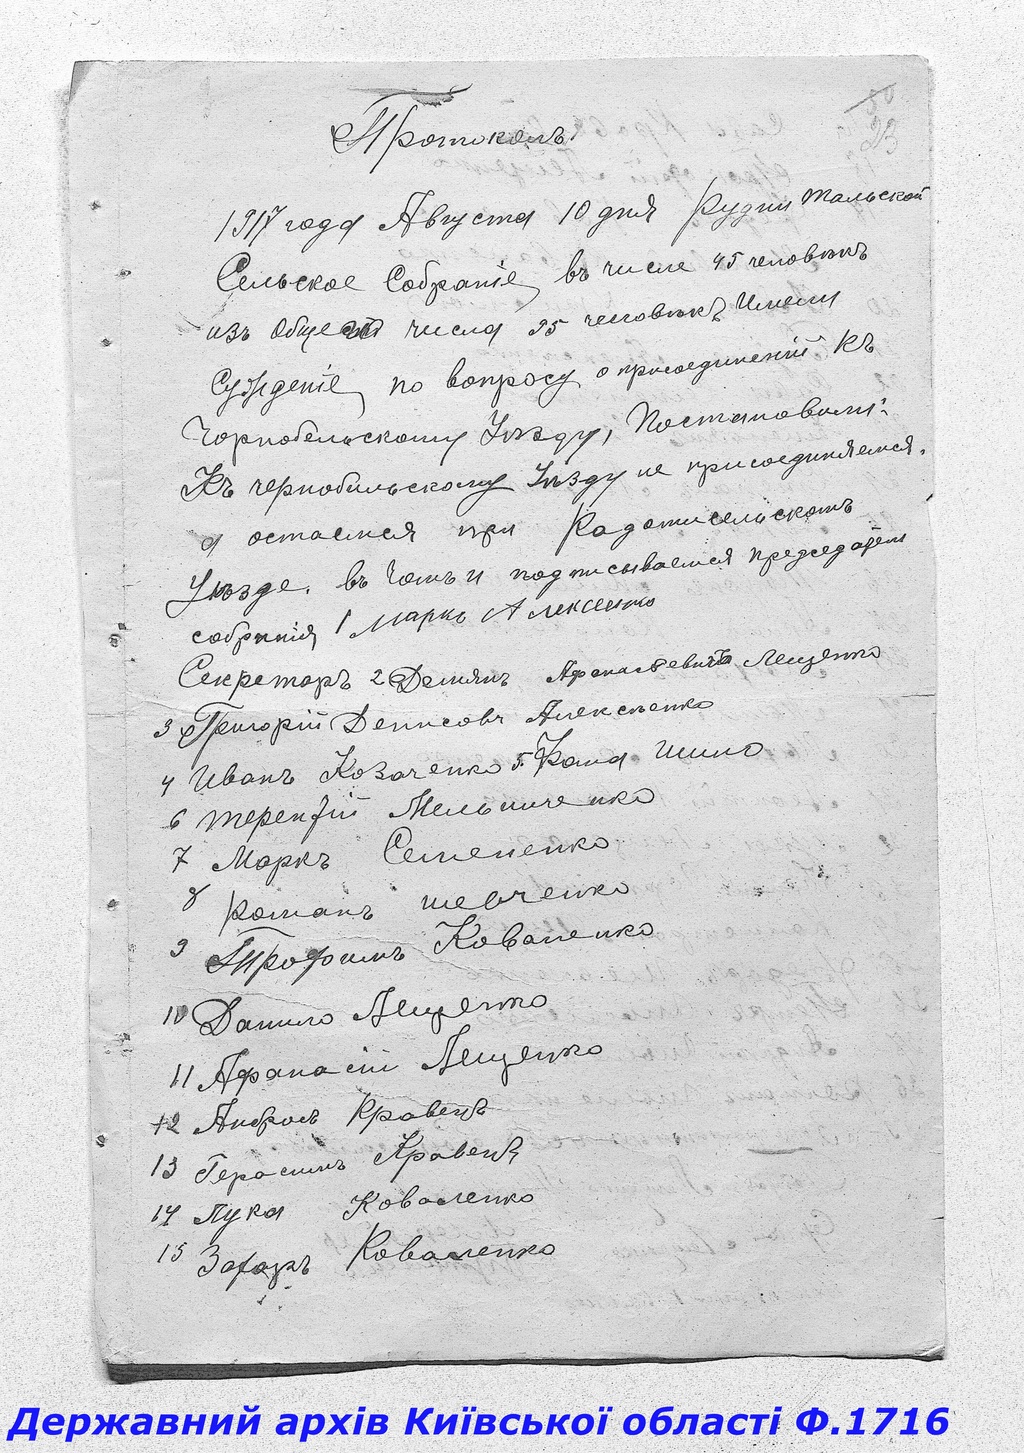 23
Протоколъ
1917 года Августа 10 дня Рудни Тальской
Сельское Собраніе въ числе 45 человѣкъ
изъ Общего числа 95 человѣкъ Имели
Сужденіе по вопросу о присоединеній къ
Чорнобыльскому Уѣзду, Постановили:
Къ чернобильскому Уѣзду не присоединяемся.
а остаемся при Радомисельскомъ
Уѣзде. въ чомъ и подписываемся председатель
собранія 1 Маркъ Алексеенко
Секретаръ 2 Демянъ Афанасьевичъ Лещенко
3 Григорій Денисовъ Алексѣенко
4 Иванъ Козаченко 5. Фома Шило
6 Терентій Мельниченко
7 Маркъ Семененко
8 Романъ Шевченко
9 Трофимъ Коваленко
10 Данило Лещенко
11 Афанасій Лещенко
12 Андрей Кравецъ
13 Герасимъ Кравецъ
14 Лука Коваленко
15 Захаръ Коваленко
Державний архів Київської області Ф.1716